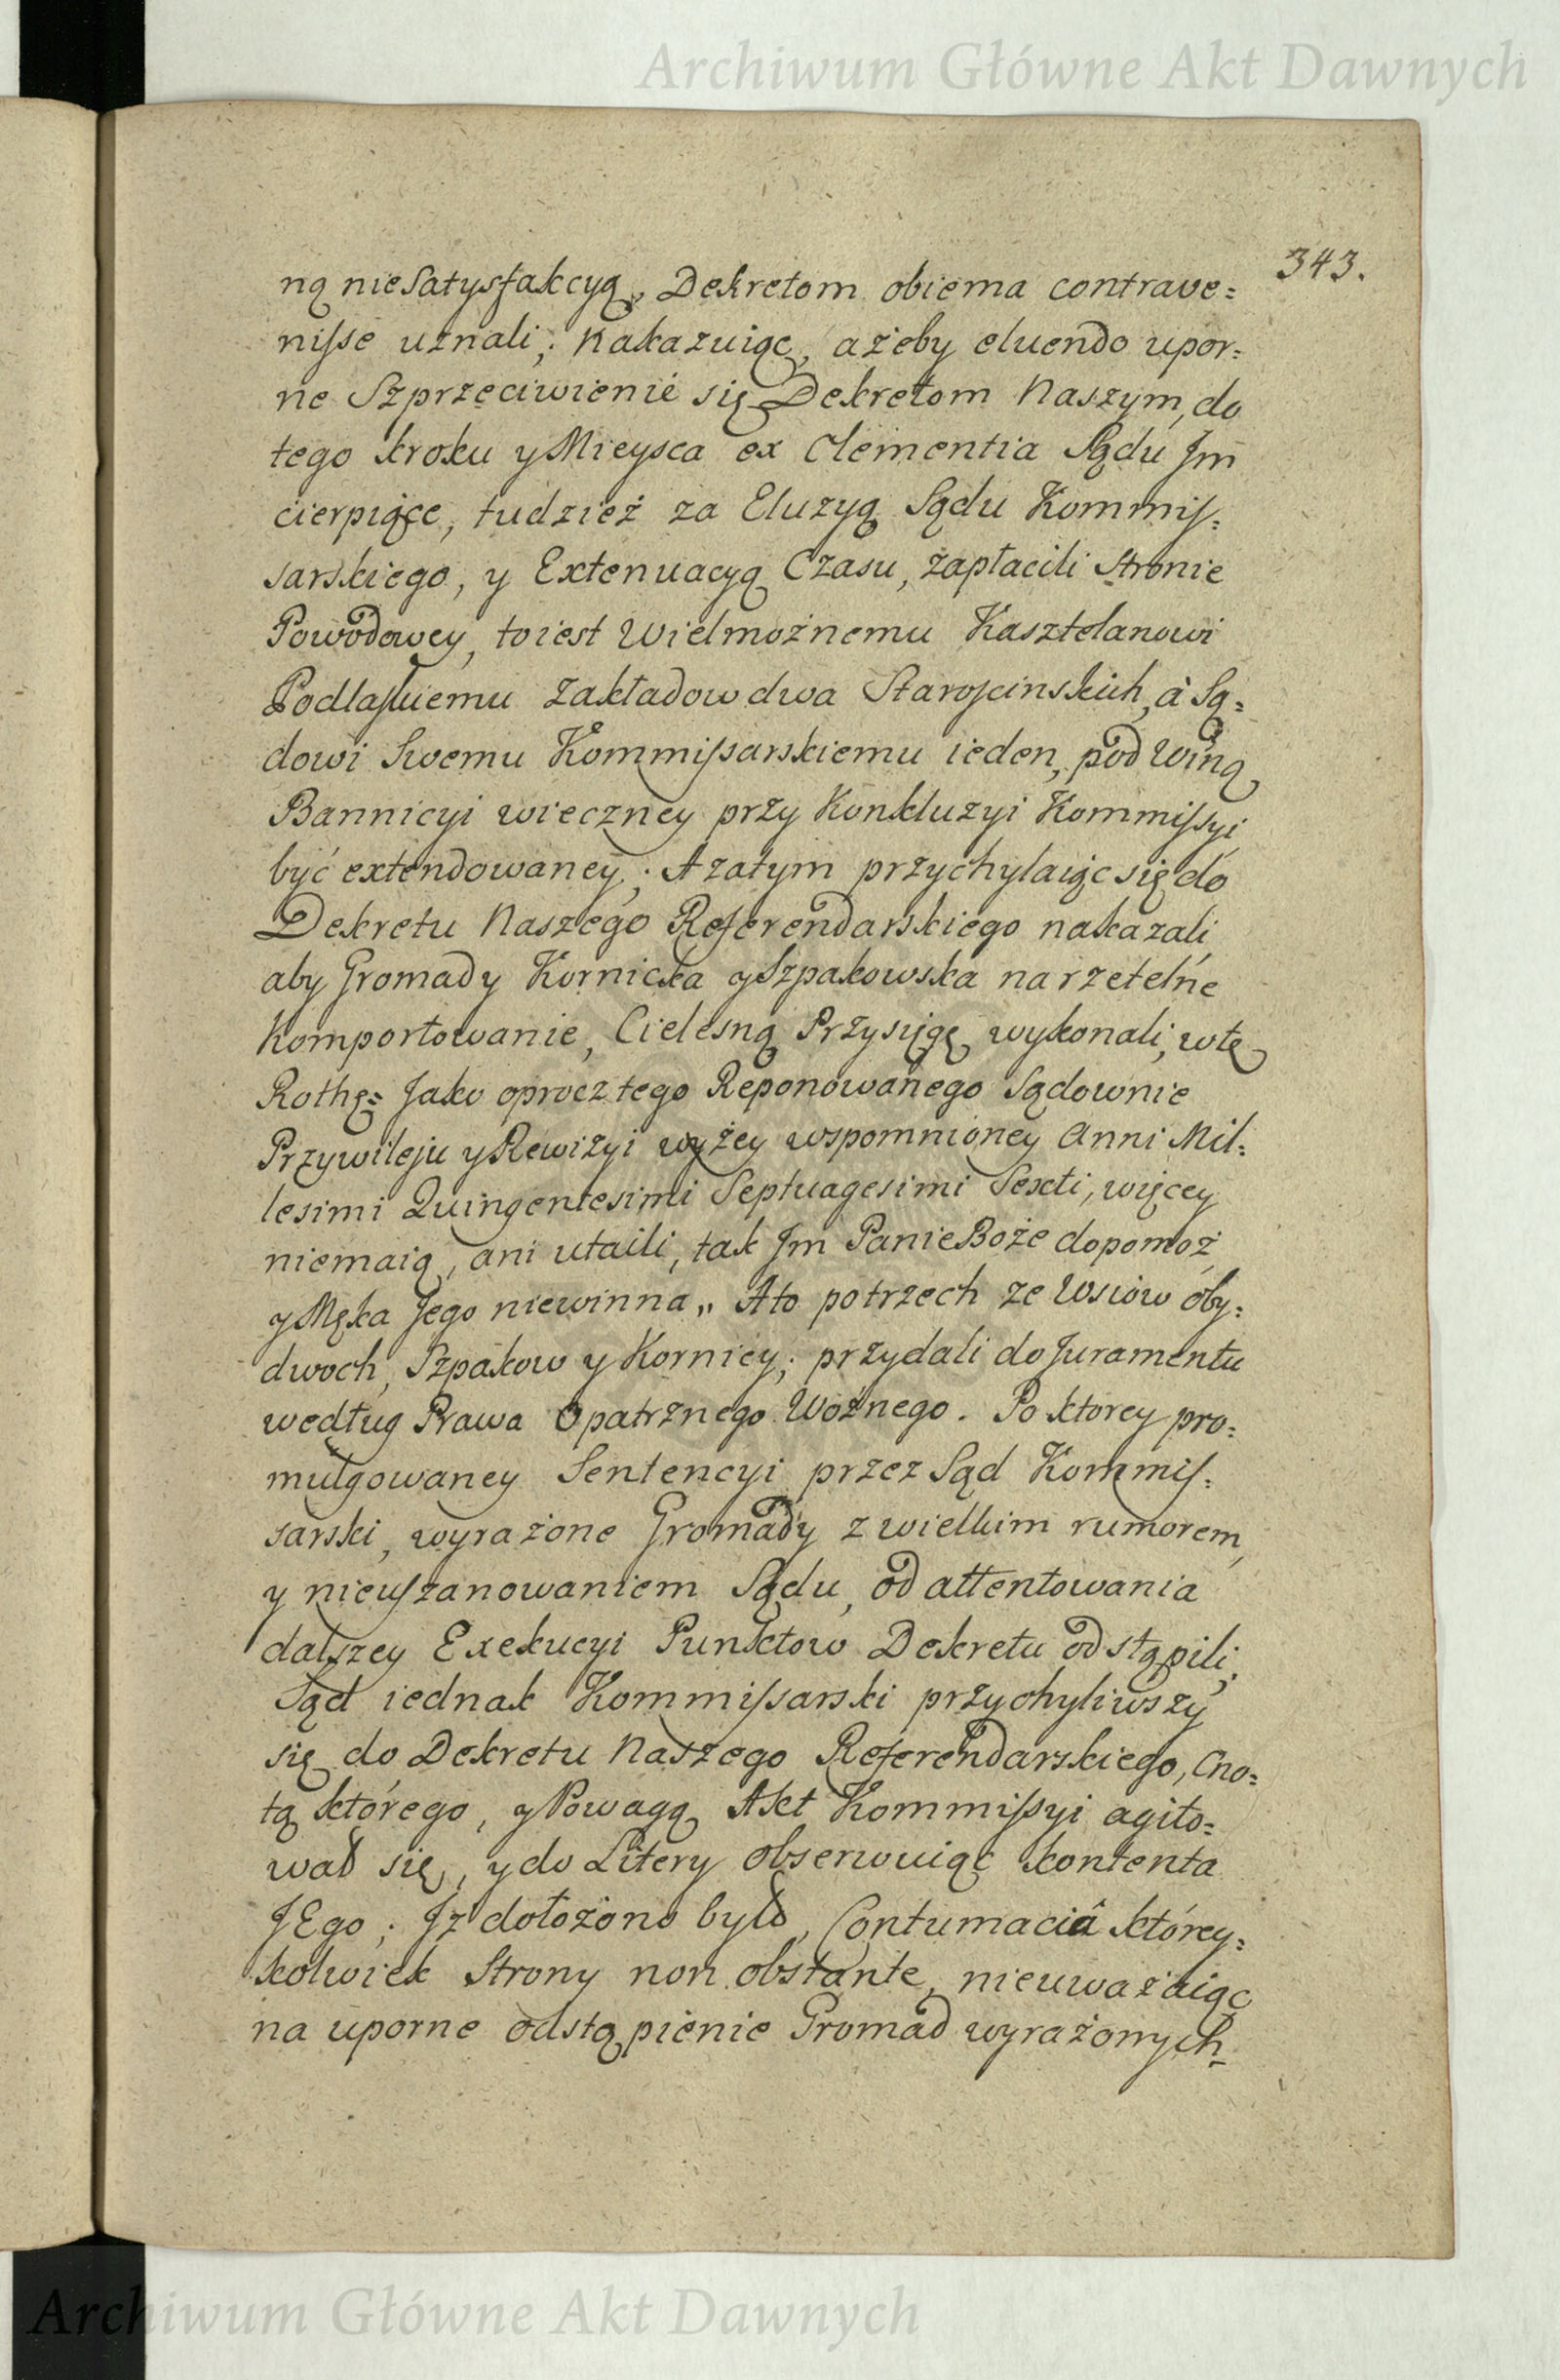 Archiwum Główne Akt Dawnych
343.
ną nie Satysfakcyą, Dekretom obiema contrave=
nisse uznali; Nakazuiąc, ażeby eluendo upor=
ne Szprzeciwienie się Dekretom Naszym, do
tego kroku y Mieysca ex Clementia Sądu Jm
cierpiące, tudzież za Eluzyą Sądu Kommis=
sarskiego, y Extenuacyą Czasu, zapłacili Stronie
Powodowey, toiest Wielmożnemu Kasztelanowi
Podlaskiemu Zakładow dwa Starościnskich, à Są=
dowi Swemu Kommissarskiemu ieden, pod Winą
Bannicyi wieczney przy Konkluzyi Kommissyi
być extendowaney; A zatym przychylaiąc się do
Dekretu Naszego Referendarskiego nakazali
aby Gromady Kornicka y Szpakowska na rzetelne
Komportowanie, Cielesną Przysięgę wykonali, w tę
Rothę= Jako oprocz tego Reponowanego Sądownie
Przywileju y Rewizyi wyżey wspomnioney Anni Mil=
lesimi Quingentesimi Septuagesimi Sexti, więcey
niemaią, ani utaili, tak Jm Panie Boże dopomoż,
y Męka Jego niewinna„ A to po trzech ze Wsiow oby=
dwoch, Szpakow y Kornicy; przydali do Juramentu
według Prawa Opatrznego Woźnego. Po ktorey pro=
mulgowaney Sentencyi przez Sąd Kommis=
sarski, wyrażone Gromady z wielkim rumorem,
y nieuszanowaniem Sądu, od attentowania
dalszey Exekucyi Punktow Dekretu odstąpili;
Sąd iednak Kommissarski przychyliwszy
się do Dekretu Naszego Referendarskiego, Cno=
tą którego, y Powagą Akt Kommissyi agito=
wał się, y do Litery obserwuiąc kontenta
JEgo; Jż dołożono było, Contumaciâ którey=
kolwiek Strony non obstante, nieuważaiąc
na uporne odstąpienie Gromad wyrażonych
Archiwum Główne Akt Dawnych